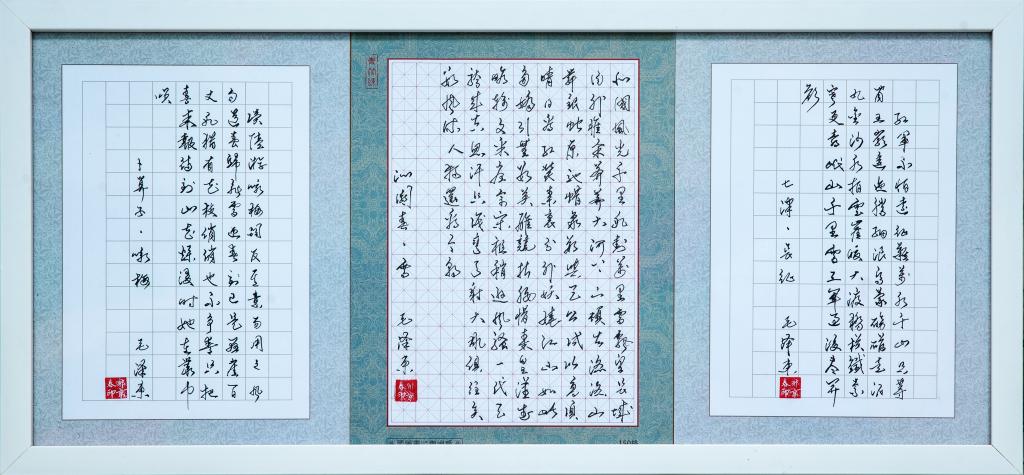 红军不怕远征难万水千山只等
闲五岭逶迤腾细浪乌蒙磅礴走泥
丸金沙水拍云崖暖大渡桥横铁索
寒更喜岷山千里雪三军过后尽开
颜
七律、长征 毛泽东
北國風光千里冰封萬里雪飘望长城
内外惟余莽莽大河上下顿失滔滔山
舞银蛇原驰蜡象欲与天公试比高须
晴日看红装素裹分外妖娆江山如此
多娇引无数英雄竞折腰惜秦皇汉武
略输文采唐宗宋祖稍逊风骚一代天
骄成吉思汗只识弯弓射大雕俱往矣
数风流人物还看今朝
沁園春、雪 毛泽东
读陆游咏梅词反其意而用之 风
雨送春归飞雪迎春到已是悬崖百
丈冰犹有花枝俏俏也不争春只把
春来报待到山花烂漫时她在丛中
笑
卜算子、咏梅 毛泽东